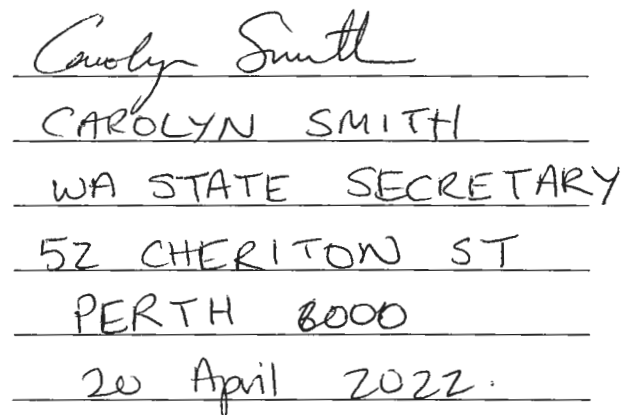 Carolyn Smith
CAROLYN SMITH
WA STATE SECRETARY
52 CHERITON ST
PERTH 6000
20 April 2022.